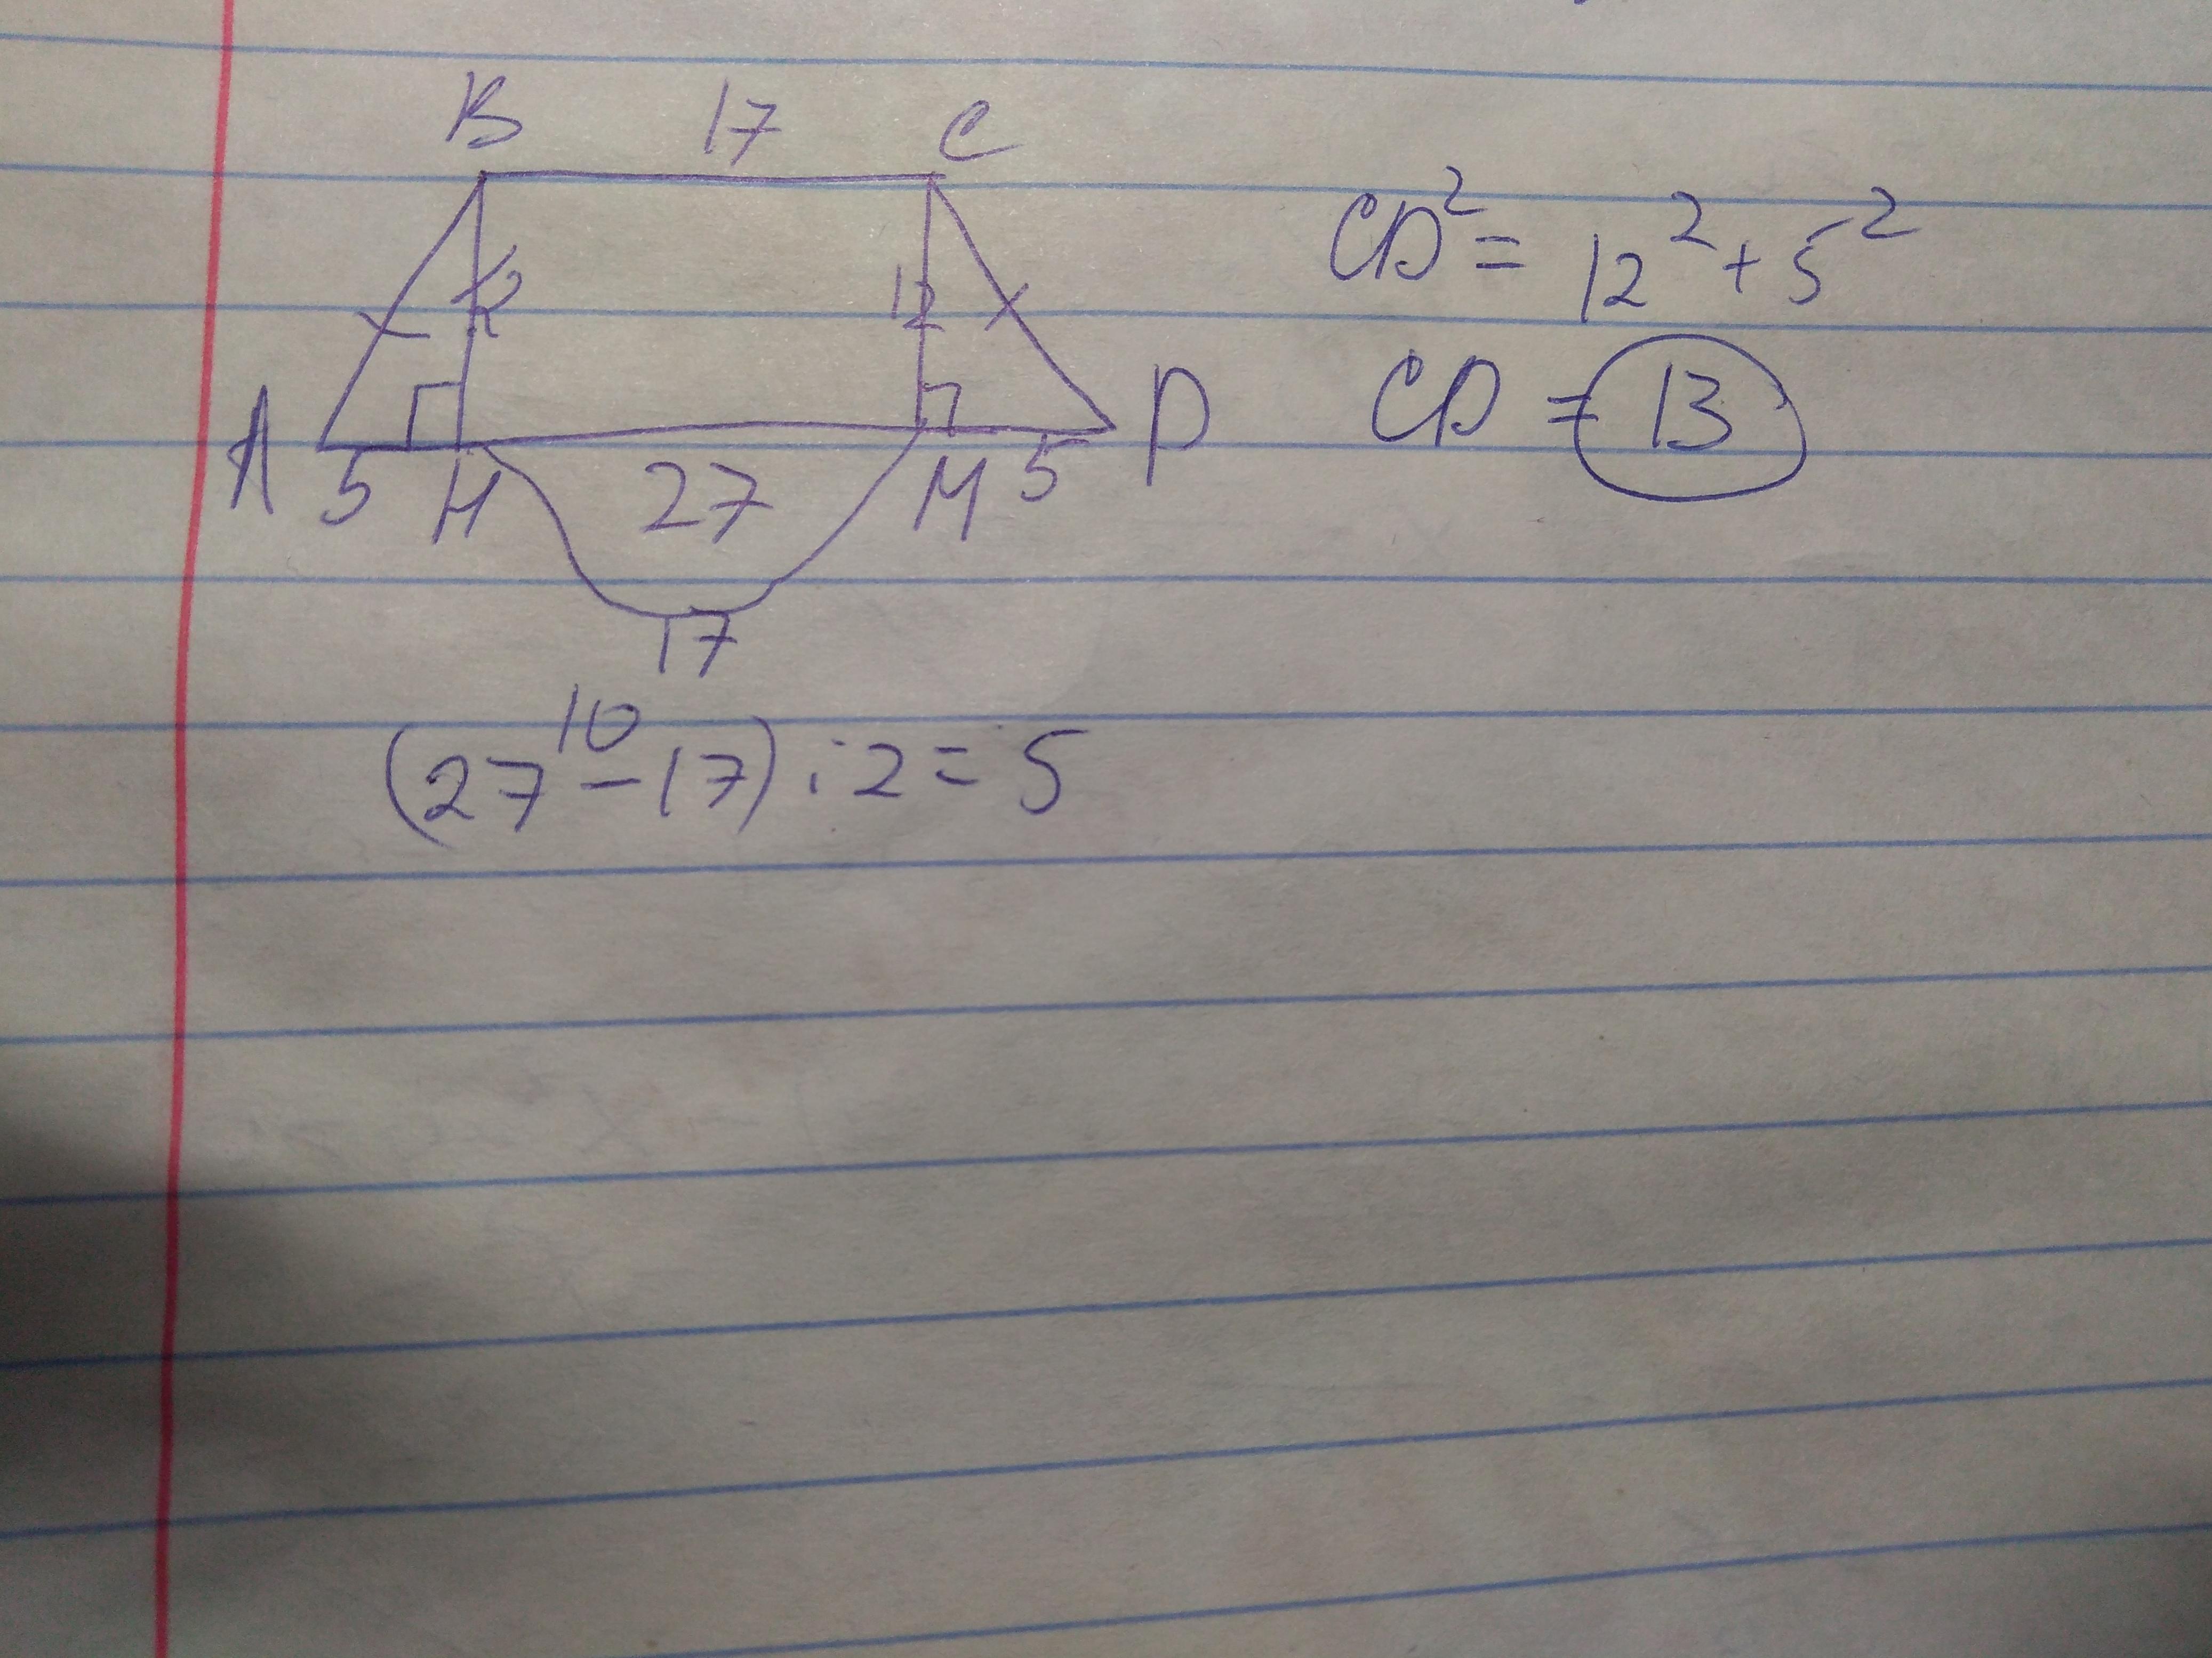 B 17 C
12 12
A 5 H 27 M 5 D
17
(27 - 17) : 2 = 5
10
CD² = 12² + 5²
CD = 13